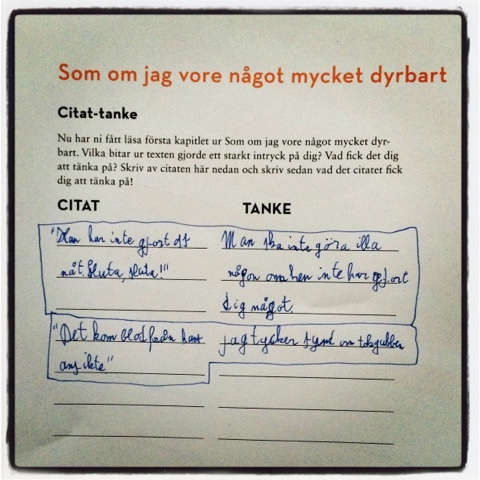 Som om jag vore något mycket dyrbart
Citat-tanke
Nu har ni fått läsa första kapitlet ur Som om jag vore något mycket dyr-
bart. Vilka bitar ur texten gjorde ett starkt intryck på dig? Vad fick det dig
att tänka på? Skriv av citaten här nedan och skriv sedan vad det citatet fick
dig att tänka på!
CITAT
TANKE
"Han har inte gjort
nåt. Sluta, sluta!"
Man ska inte göra illa
någon om hen inte har gjort
dig något.
"Det kom blod från hans
ansikte"
jag tycker synd om